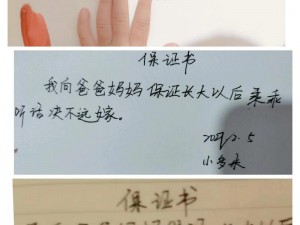 保证书
我向爸爸妈妈保证长大以后乖乖
听话决不远嫁。
2021.2.5
小多朵
保证书